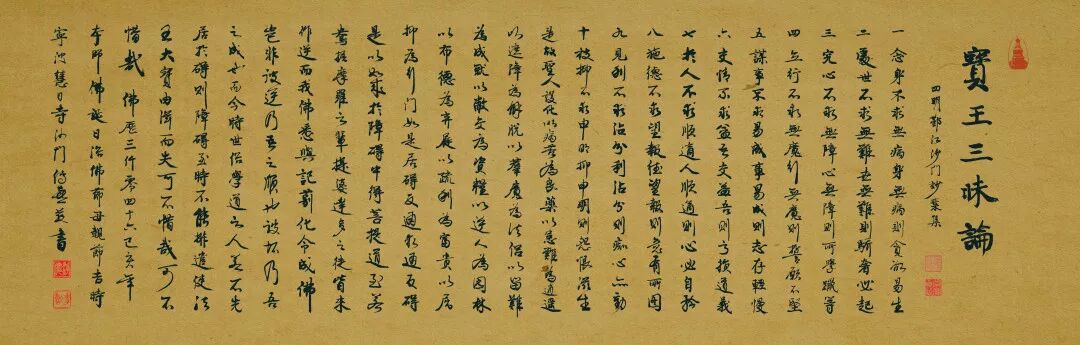 寶王三昧論
四明鄞江沙門妙葉集
一念身不求無病身無病則貪欲易生
二處世不求無難世無難則驕奢必起
三究心不求無障心無障則所學躐等
四立行不求無魔行無魔則誓願不堅
五謀事不求易成事易成則志存輕慢
六交情不求益吾交益吾則亏損道義
七於人不求順適人順適則心必自矜
八施德不求望報德望報則意有所圖
九見利不求沾分利沾分則痴心亦動
十被抑不求申明抑申明則怨恨滋生
是故聖人設化以病苦為良藥以患難為逍遥
以遮障為解脫以羣魔為法侣以留難
為成就以敝交為資糧以逆人為園林
以布德為弃屣以疏利為富貴以屈
抑為行門如是居礙反通求通反礙
是以如來於障礙中得菩提道至若
鴦掘摩羅之輩提婆達多之徒皆來
作逆而我佛悉與記莂化令成佛
豈非彼逆乃吾之順也彼壞乃吾
之成也而今時世俗學道之人若不先
居於礙則障礙至時不能排遣使法
王大寶由得而失可不惜哉可不
惜哉 佛曆三仟零四十六己亥年
本師佛誕日浴佛節母親節吉時
寧波慧日寺沙門傳並書